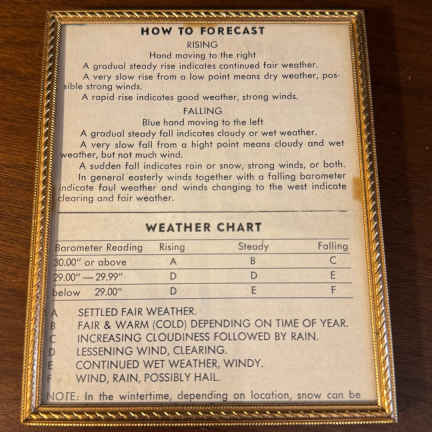 HOW TO FORECAST
RISING
Hand moving to the right
A gradual steady rise indicates continued fair weather.
A very slow rise from a low point means dry weather, pos-
sible strong winds.
A rapid rise indicates good weather, strong winds.
FALLING
Blue hand moving to the left
A gradual steady fall indicates cloudy or wet weather.
A very slow fall from a hight point means cloudy and wet
weather, but not much wind.
A sudden fall indicates rain or snow, strong winds, or both.
In general easterly winds together with a falling barometer
indicate foul weather and winds changing to the west indicate
clearing and fair weather.
WEATHER CHART
Barometer Reading Rising Steady Falling
30.00" or above A B C
29.00" — 29.99" D D E
below 29.00" D E F
A SETTLED FAIR WEATHER.
B FAIR & WARM (COLD) DEPENDING ON TIME OF YEAR.
C INCREASING CLOUDINESS FOLLOWED BY RAIN.
D LESSENING WIND, CLEARING.
E CONTINUED WET WEATHER, WINDY.
F WIND, RAIN, POSSIBLY HAIL.
NOTE: In the wintertime, depending on location, snow can be